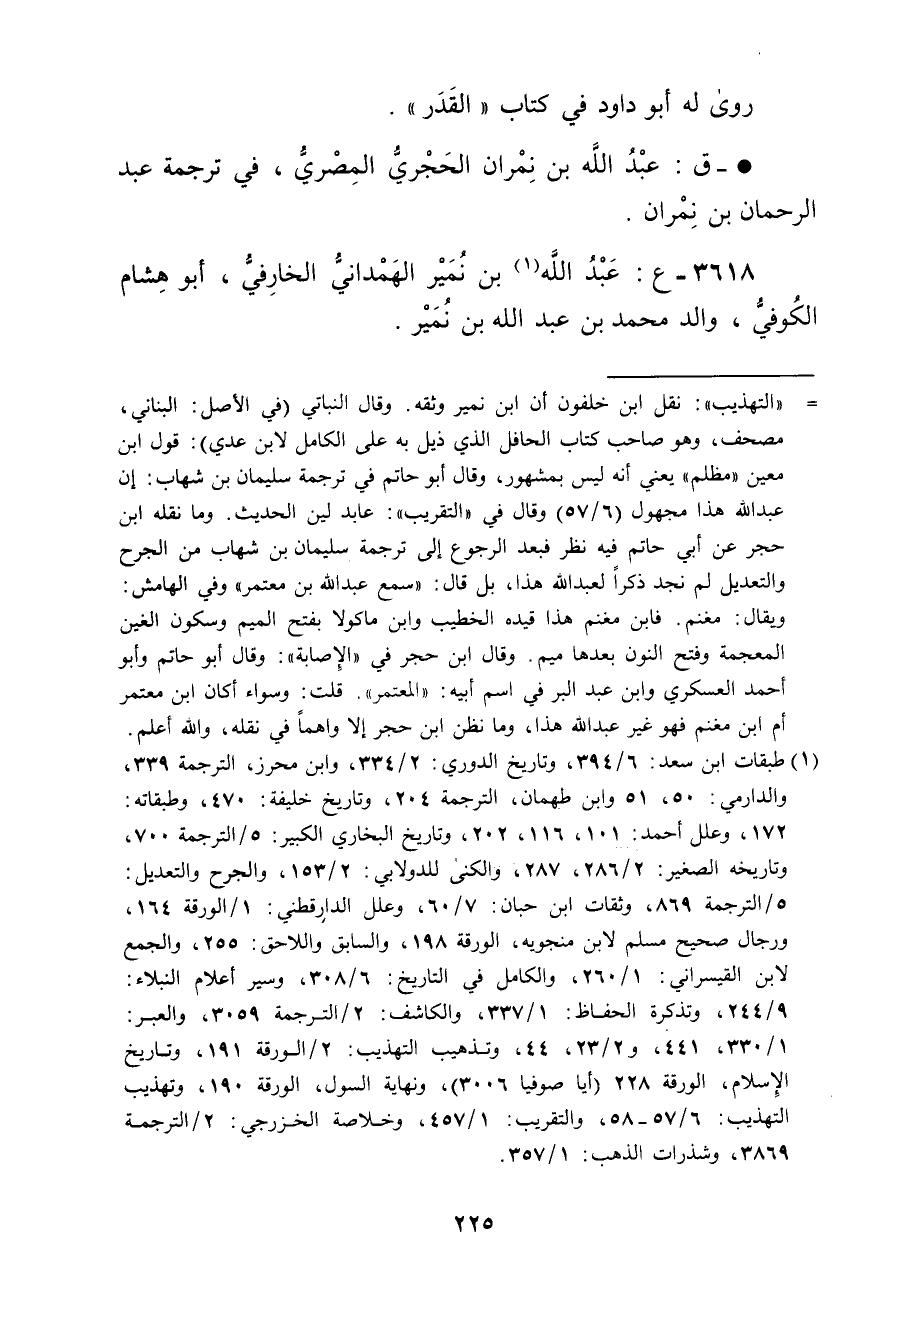 روىٰ له أبو داود في كتاب « القَدَر » .
● ـ ق : عبْدُ اللَّه بن نِمْران الحَجْريُّ المِصْريُّ ، في ترجمة عبد
الرحمان بن نِمْران .
٣٦١٨ ـ ع : عَبْدُ اللَّه(١) بن نُمَيْر الهَمْدانيُّ الخارِفيُّ ، أبو هِشام
الكُوفيُّ ، والد محمد بن عبد الله بن نُمَيْر .
= «التهذيب»: نقل ابن خلفون أن ابن نمير وثقه. وقال النباتي (في الأصل: البناني،
مصحف، وهو صاحب كتاب الحافل الذي ذيل به على الكامل لابن عدي): قول ابن
معين «مظلم» يعني أنه ليس بمشهور، وقال أبو حاتم في ترجمة سليمان بن شهاب: إن
عبدالله هذا مجهول (٥٧/٦) وقال في «التقريب»: عابد لين الحديث. وما نقله ابن
حجر عن أبي حاتم فيه نظر فبعد الرجوع إلى ترجمة سليمان بن شهاب من الجرح
والتعديل لم نجد ذكراً لعبدالله هذا، بل قال: «سمع عبدالله بن معتمر» وفي الهامش:
ويقال: مغنم. فابن مغنم هذا قيده الخطيب وابن ماكولا بفتح الميم وسكون الغين
المعجمة وفتح النون بعدها ميم. وقال ابن حجر في «الإصابة»: وقال أبو حاتم وأبو
أحمد العسكري وابن عبد البر في اسم أبيه: «المعتمر». قلت: وسواء أكان ابن معتمر
أم ابن مغنم فهو غير عبدالله هذا، وما نظن ابن حجر إلا واهماً في نقله، والله أعلم.
(١) طبقات ابن سعد: ٣٩٤/٦، وتاريخ الدوري: ٣٣٤/٢، وابن محرز، الترجمة ٣٣٩،
والدارمي: ٥٠، ٥١ وابن طهمان، الترجمة ٢٠٤، وتاريخ خليفة: ٤٧٠، وطبقاته:
١٧٢، وعلل أحمد: ١٠١، ١١٦، ٢٠٢، وتاريخ البخاري الكبير: ٥/الترجمة ٧٠٠،
وتاريخه الصغير: ٢٨٦/٢، ٢٨٧، والكنىٰ للدولابي: ١٥٣/٢، والجرح والتعديل:
٥/الترجمة ٨٦٩، وثقات ابن حبان: ٦٠/٧، وعلل الدارقطني: ١/الورقة ١٦٤،
ورجال صحيح مسلم لابن منجويه، الورقة ١٩٨، والسابق واللاحق: ٢٥٥، والجمع
لابن القيسراني: ٢٦٠/١، والكامل في التاريخ: ٣٠٨/٦، وسير أعلام النبلاء:
٢٤٤/٩، وتذكرة الحفاظ: ٣٣٧/١، والكاشف: ٢/الترجمة ٣٠٥٩، والعبر:
٣٣٠/١، ٤٤١، و٢٣/٢، ٤٤، وتذهيب التهذيب: ٢/الورقة ١٩١، وتاريخ
الإسلام، الورقة ٢٢٨ (أيا صوفيا ٣٠٠٦)، ونهاية السول، الورقة ١٩٠، وتهذيب
التهذيب: ٥٧/٦ ـ٥٨، والتقريب: ٤٥٧/١، وخلاصة الخزرجي: ٢/الترجمة
٣٨٦٩، وشذرات الذهب: ٣٥٧/١.
٢٢٥